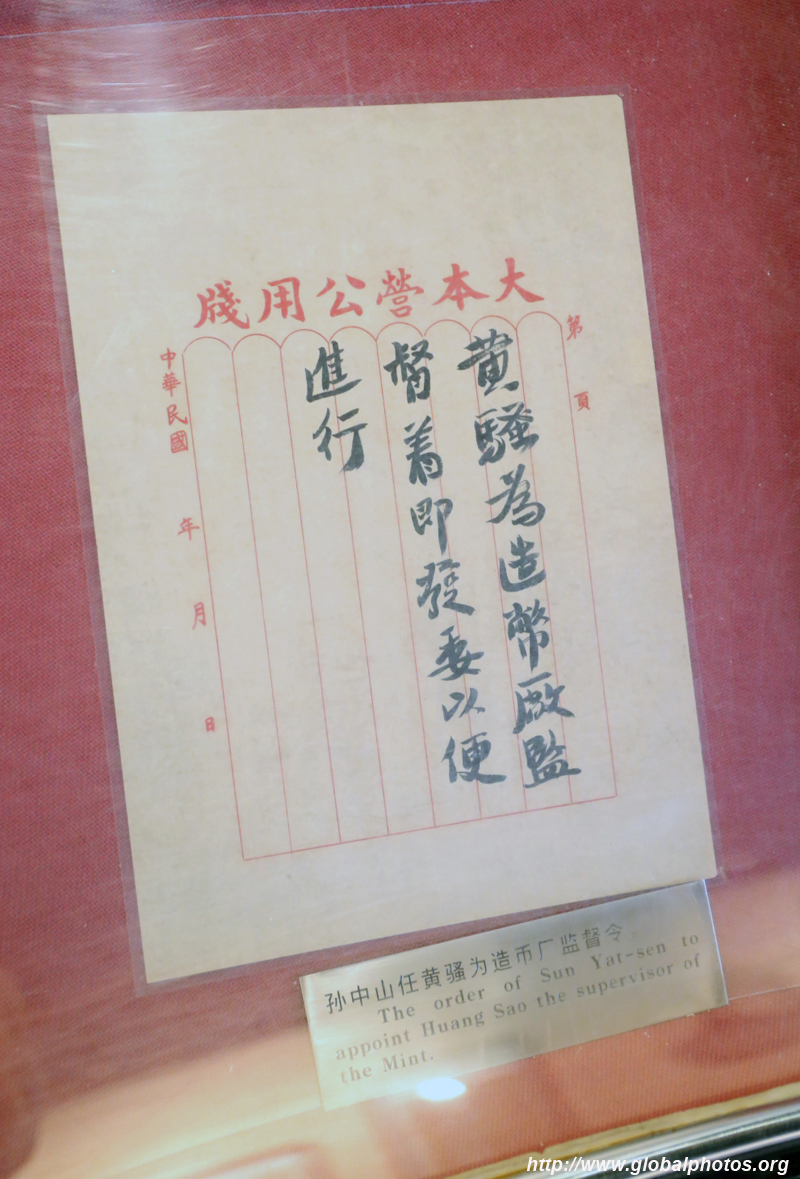 大本營公用牋
第 頁
黃騷為造幣廠監
督着即發委以便
進行
中華民國 年 月 日
孙中山任黄骚为造币厂监督令
The order of Sun Yat-sen to
appoint Huang Sao the supervisor of
the Mint.
http://www.globalphotos.org